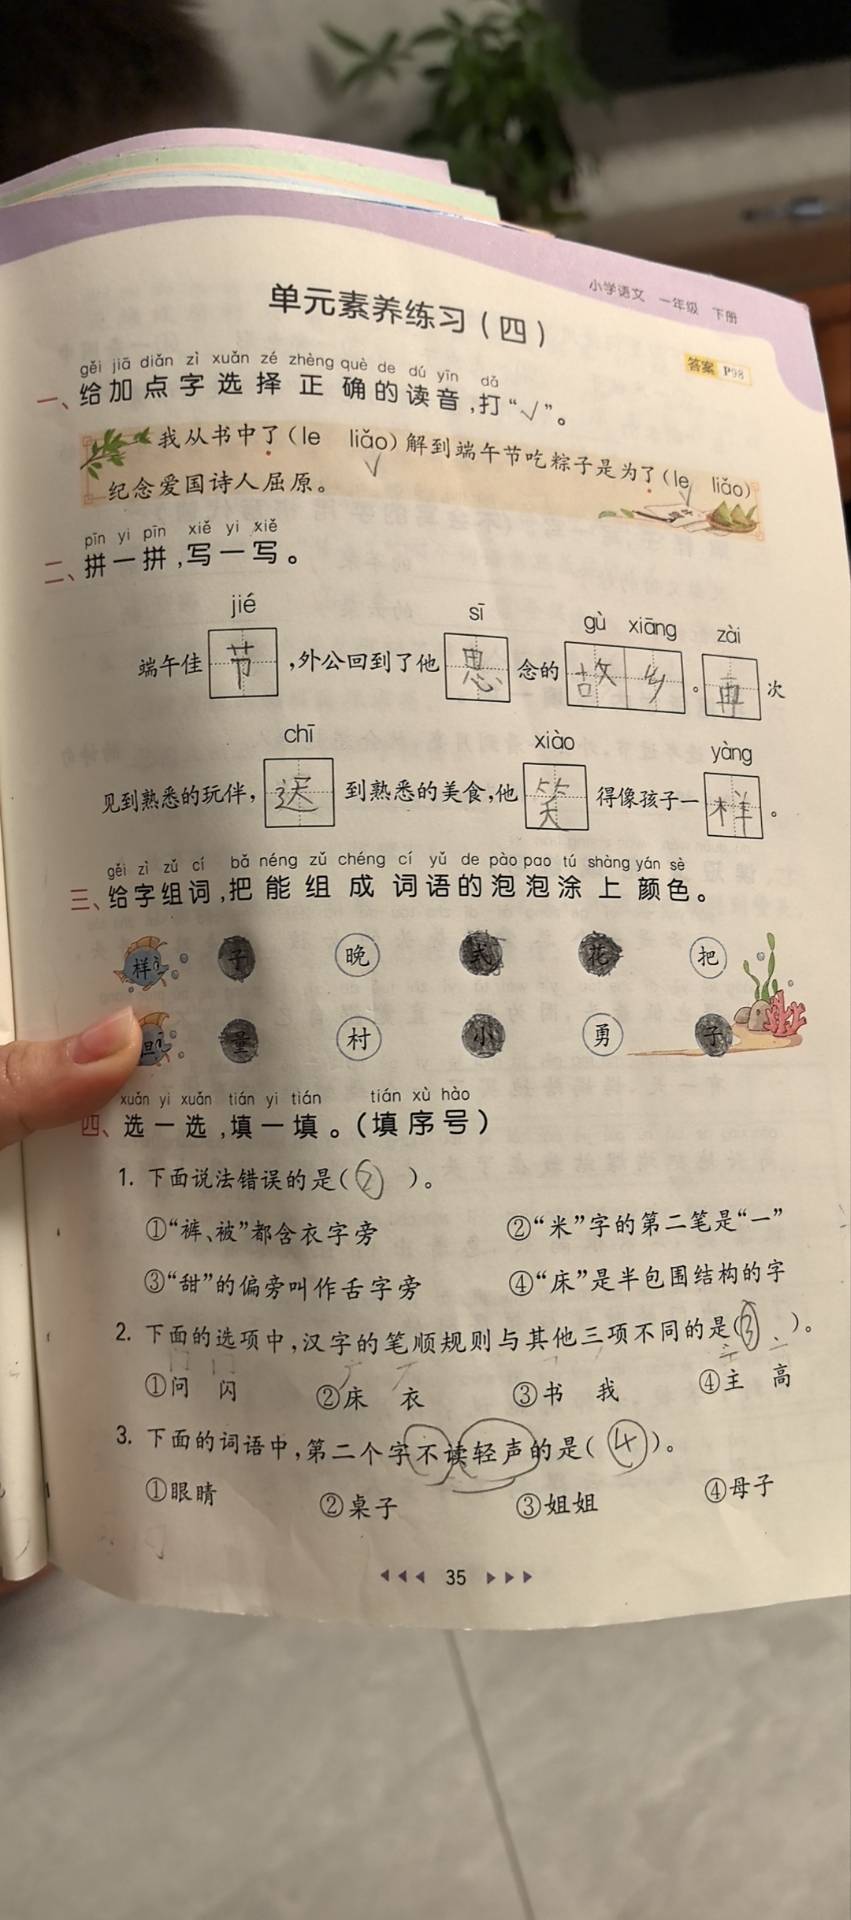 小学语文 一年级 下册
单元素养练习(四)
答案 P98
gěi jiā diǎn zì xuǎn zé zhèng què de dú yīn dǎ
一、给加点字选择正确的读音,打“√”。
我从书中了(le liǎo)解到端午节吃粽子是为了(le liǎo)
√ √
纪念爱国诗人屈原。
pīn yi pīn xiě yi xiě
二、拼一拼,写一写。
jié sī gù xiāng zài
端午佳节,外公回到了他思念的故乡。再次
chī xiào yàng
见到熟悉的玩伴,迟到熟悉的美食,他笑得像孩子一样。
gěi zì zǔ cí bǎ néng zǔ chéng cí yǔ de pào pao tú shàng yán sè
三、给字组词,把能组成词语的泡泡涂上颜色。
样 子 晚 式 花 把
胆 量 村 小 勇 子
xuǎn yi xuǎn tián yi tián tián xù hào
四、选一选,填一填。(填序号)
1. 下面说法错误的是(②)。
①“裤、被”都含衣字旁 ②“米”字的第二笔是“一”
③“甜”的偏旁叫作舌字旁 ④“床”是半包围结构的字
2. 下面的选项中,汉字的笔顺规则与其他三项不同的是(③)。
①问 闪 ②床 衣 ③书 我 ④主 高
3. 下面的词语中,第二个字不读轻声的是(④)。
①眼睛 ②桌子 ③姐姐 ④母子
35